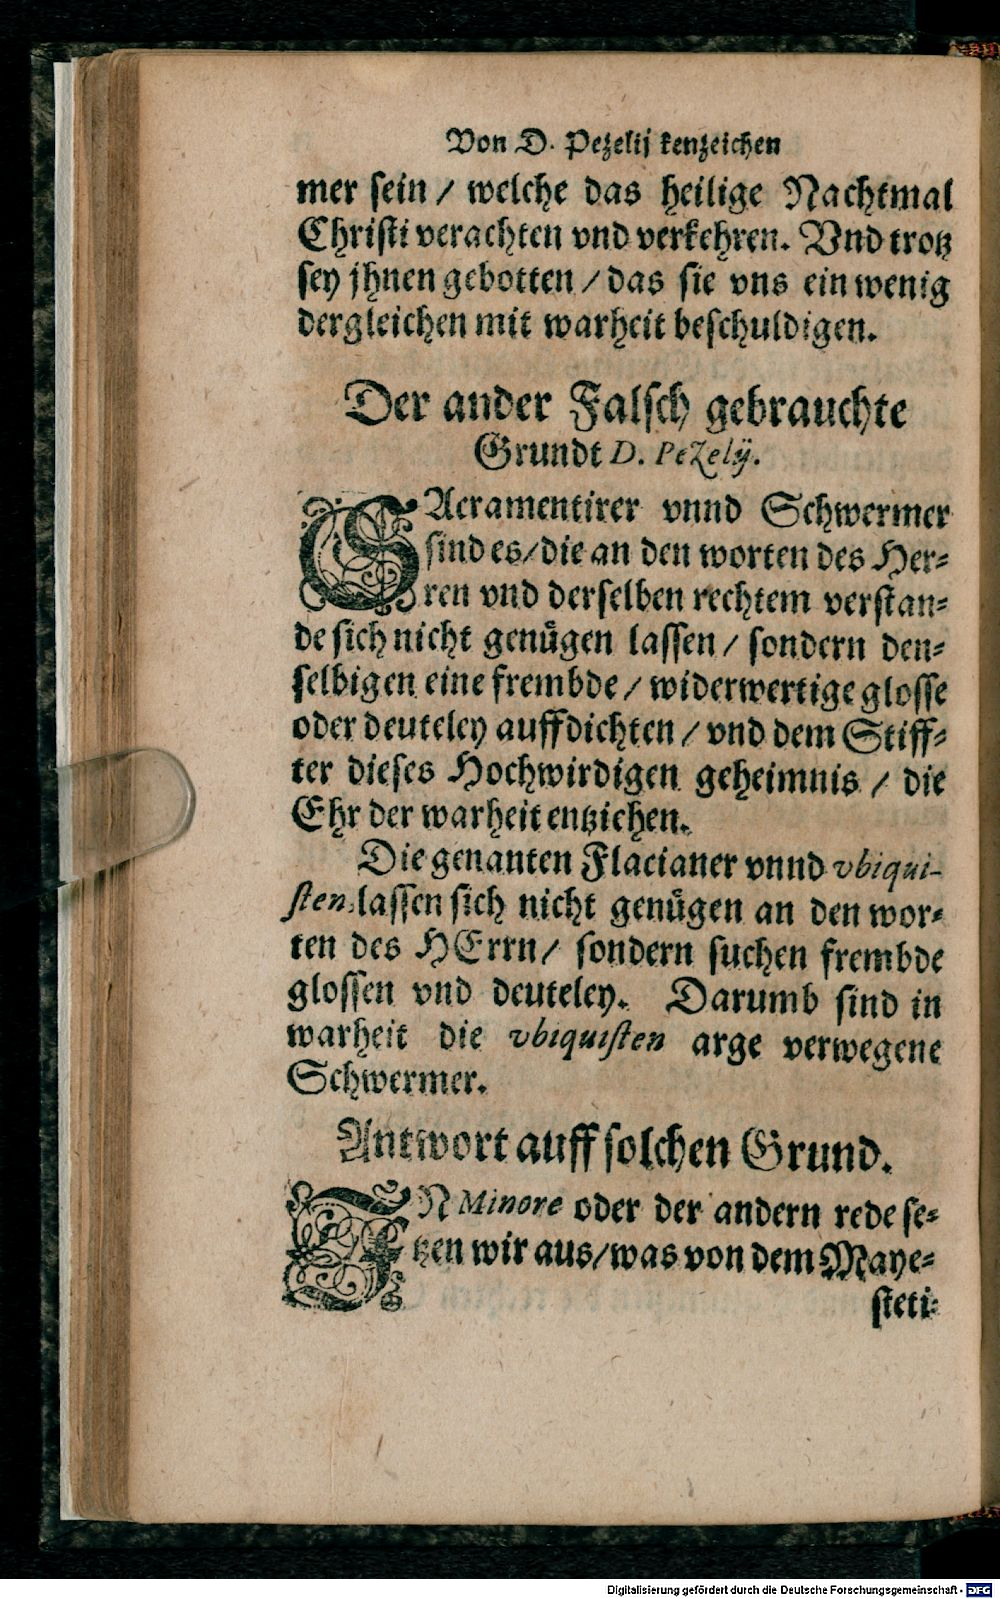 Von D. Pezelij kenzeichen
mer sein / welche das heilige Nachtmal
Christi verachten vnd verkehren. Vnd trotz
sey jhnen gebotten / das sie vns ein wenig
dergleichen mit warheit beschuldigen.
Der ander Falsch gebrauchte
Grundt D. Pezelÿ.
SAcramentirer vnnd Schwermer
sind es / die an den worten des Her-
ren vnd derselben rechtem verstan-
de sich nicht genügen lassen / sondern den-
selbigen eine frembde / widerwertige glosse
oder deuteley auffdichten / vnd dem Stiff-
ter dieses Hochwirdigen geheimnis / die
Ehr der warheit entzichen.
Die genanten Flacianer vnnd vbiqui-
sten lassen sich nicht genügen an den wor-
ten des HErrn / sondern suchen frembde
glossen vnd deuteley. Darumb sind in
warheit die vbiquisten arge verwegene
Schwermer.
Antwort auff solchen Grund.
IN Minore oder der andern rede se-
tzen wir aus / was von dem Maye-
steti-
Digitalisierung gefördert durch die Deutsche Forschungsgemeinschaft - DFG